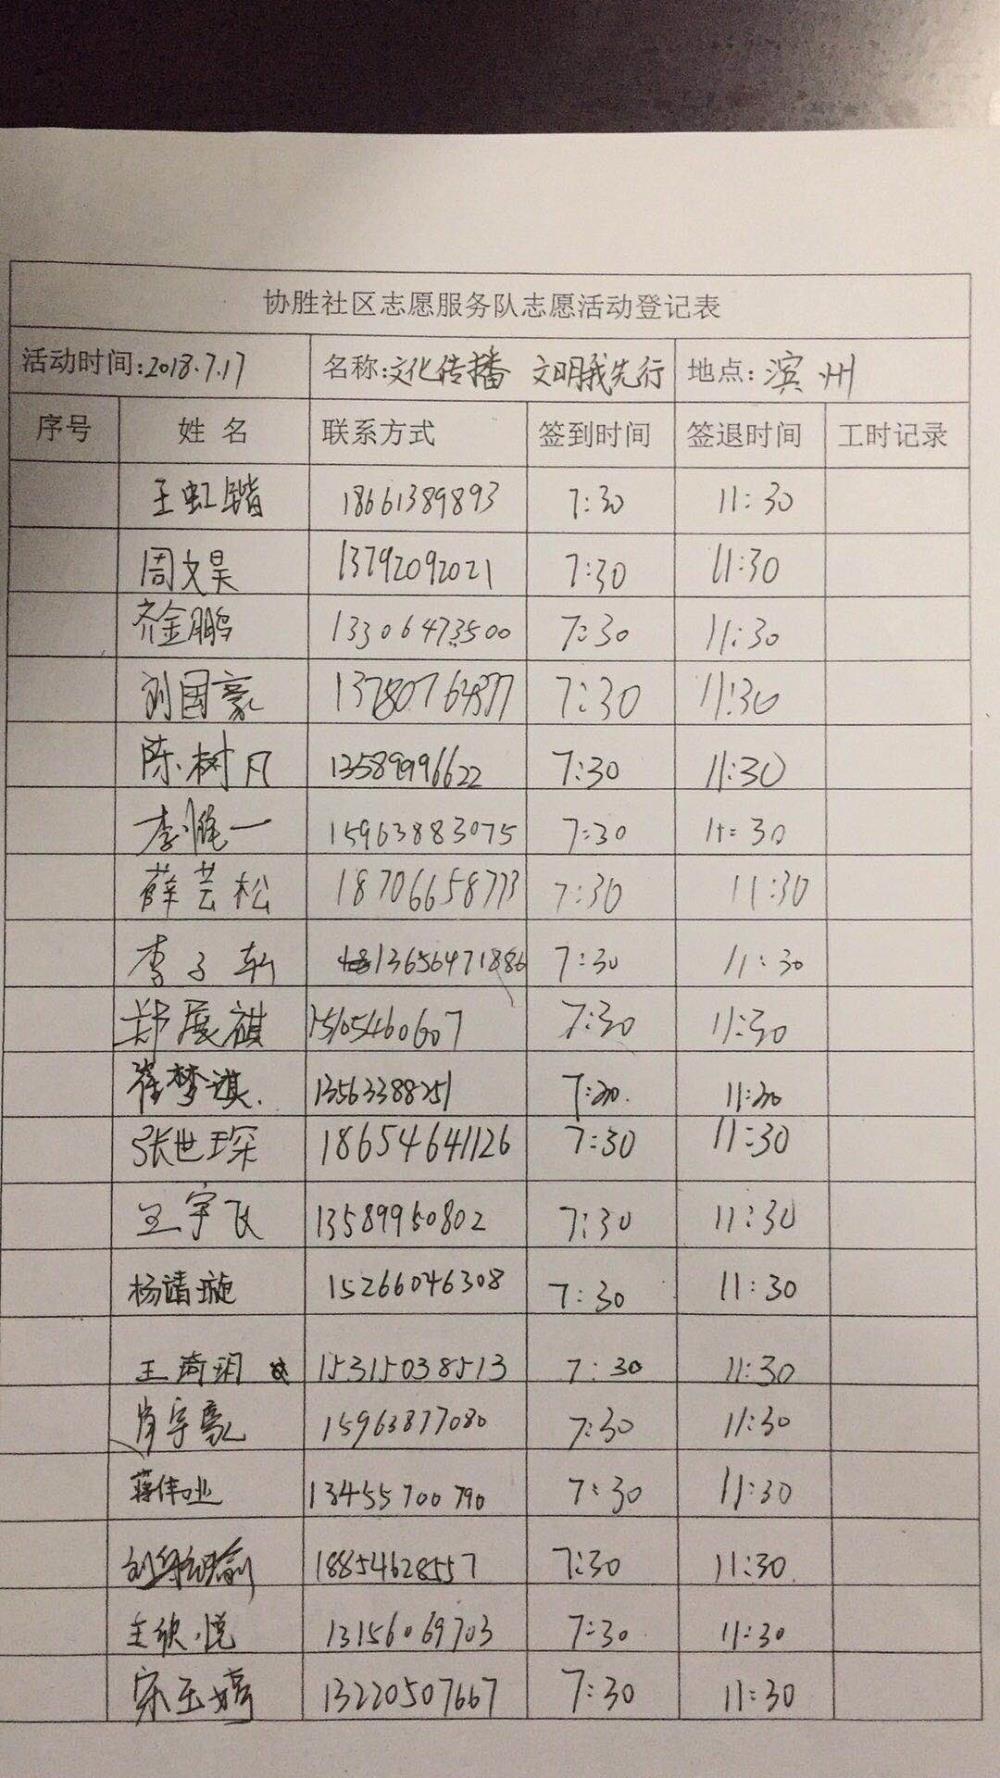 协胜社区志愿服务队志愿活动登记表
活动时间:2018.7.17 名称:文化传播 文明我先行 地点:滨州
序号 姓名 联系方式 签到时间 签退时间 工时记录
王虹锴 18661389893 7:30 11:30
周文昊 13792092021 7:30 11:30
齐金鹏 13306473500 7:30 11:30
刘国豪 13780764877 7:30 11:30
陈树凡 13589996622 7:30 11:30
李唯一 15963883075 7:30 11:30
薛芸松 18706658773 7:30 11:30
李子轩 13656471886 7:30 11:30
郑展祺 15105460607 7:30 11:30
崔梦淇 13563388251 7:30 11:30
张世琛 18654641126 7:30 11:30
王宇飞 13589950802 7:30 11:30
杨靖璇 15266046308 7:30 11:30
王琦玥 15315038513 7:30 11:30
肖宇豪 15963877080 7:30 11:30
蒋伟业 13455700790 7:30 11:30
刘 18854628557 7:30 11:30
王欣悦 13156069703 7:30 11:30
宋玉婷 13220507667 7:30 11:30